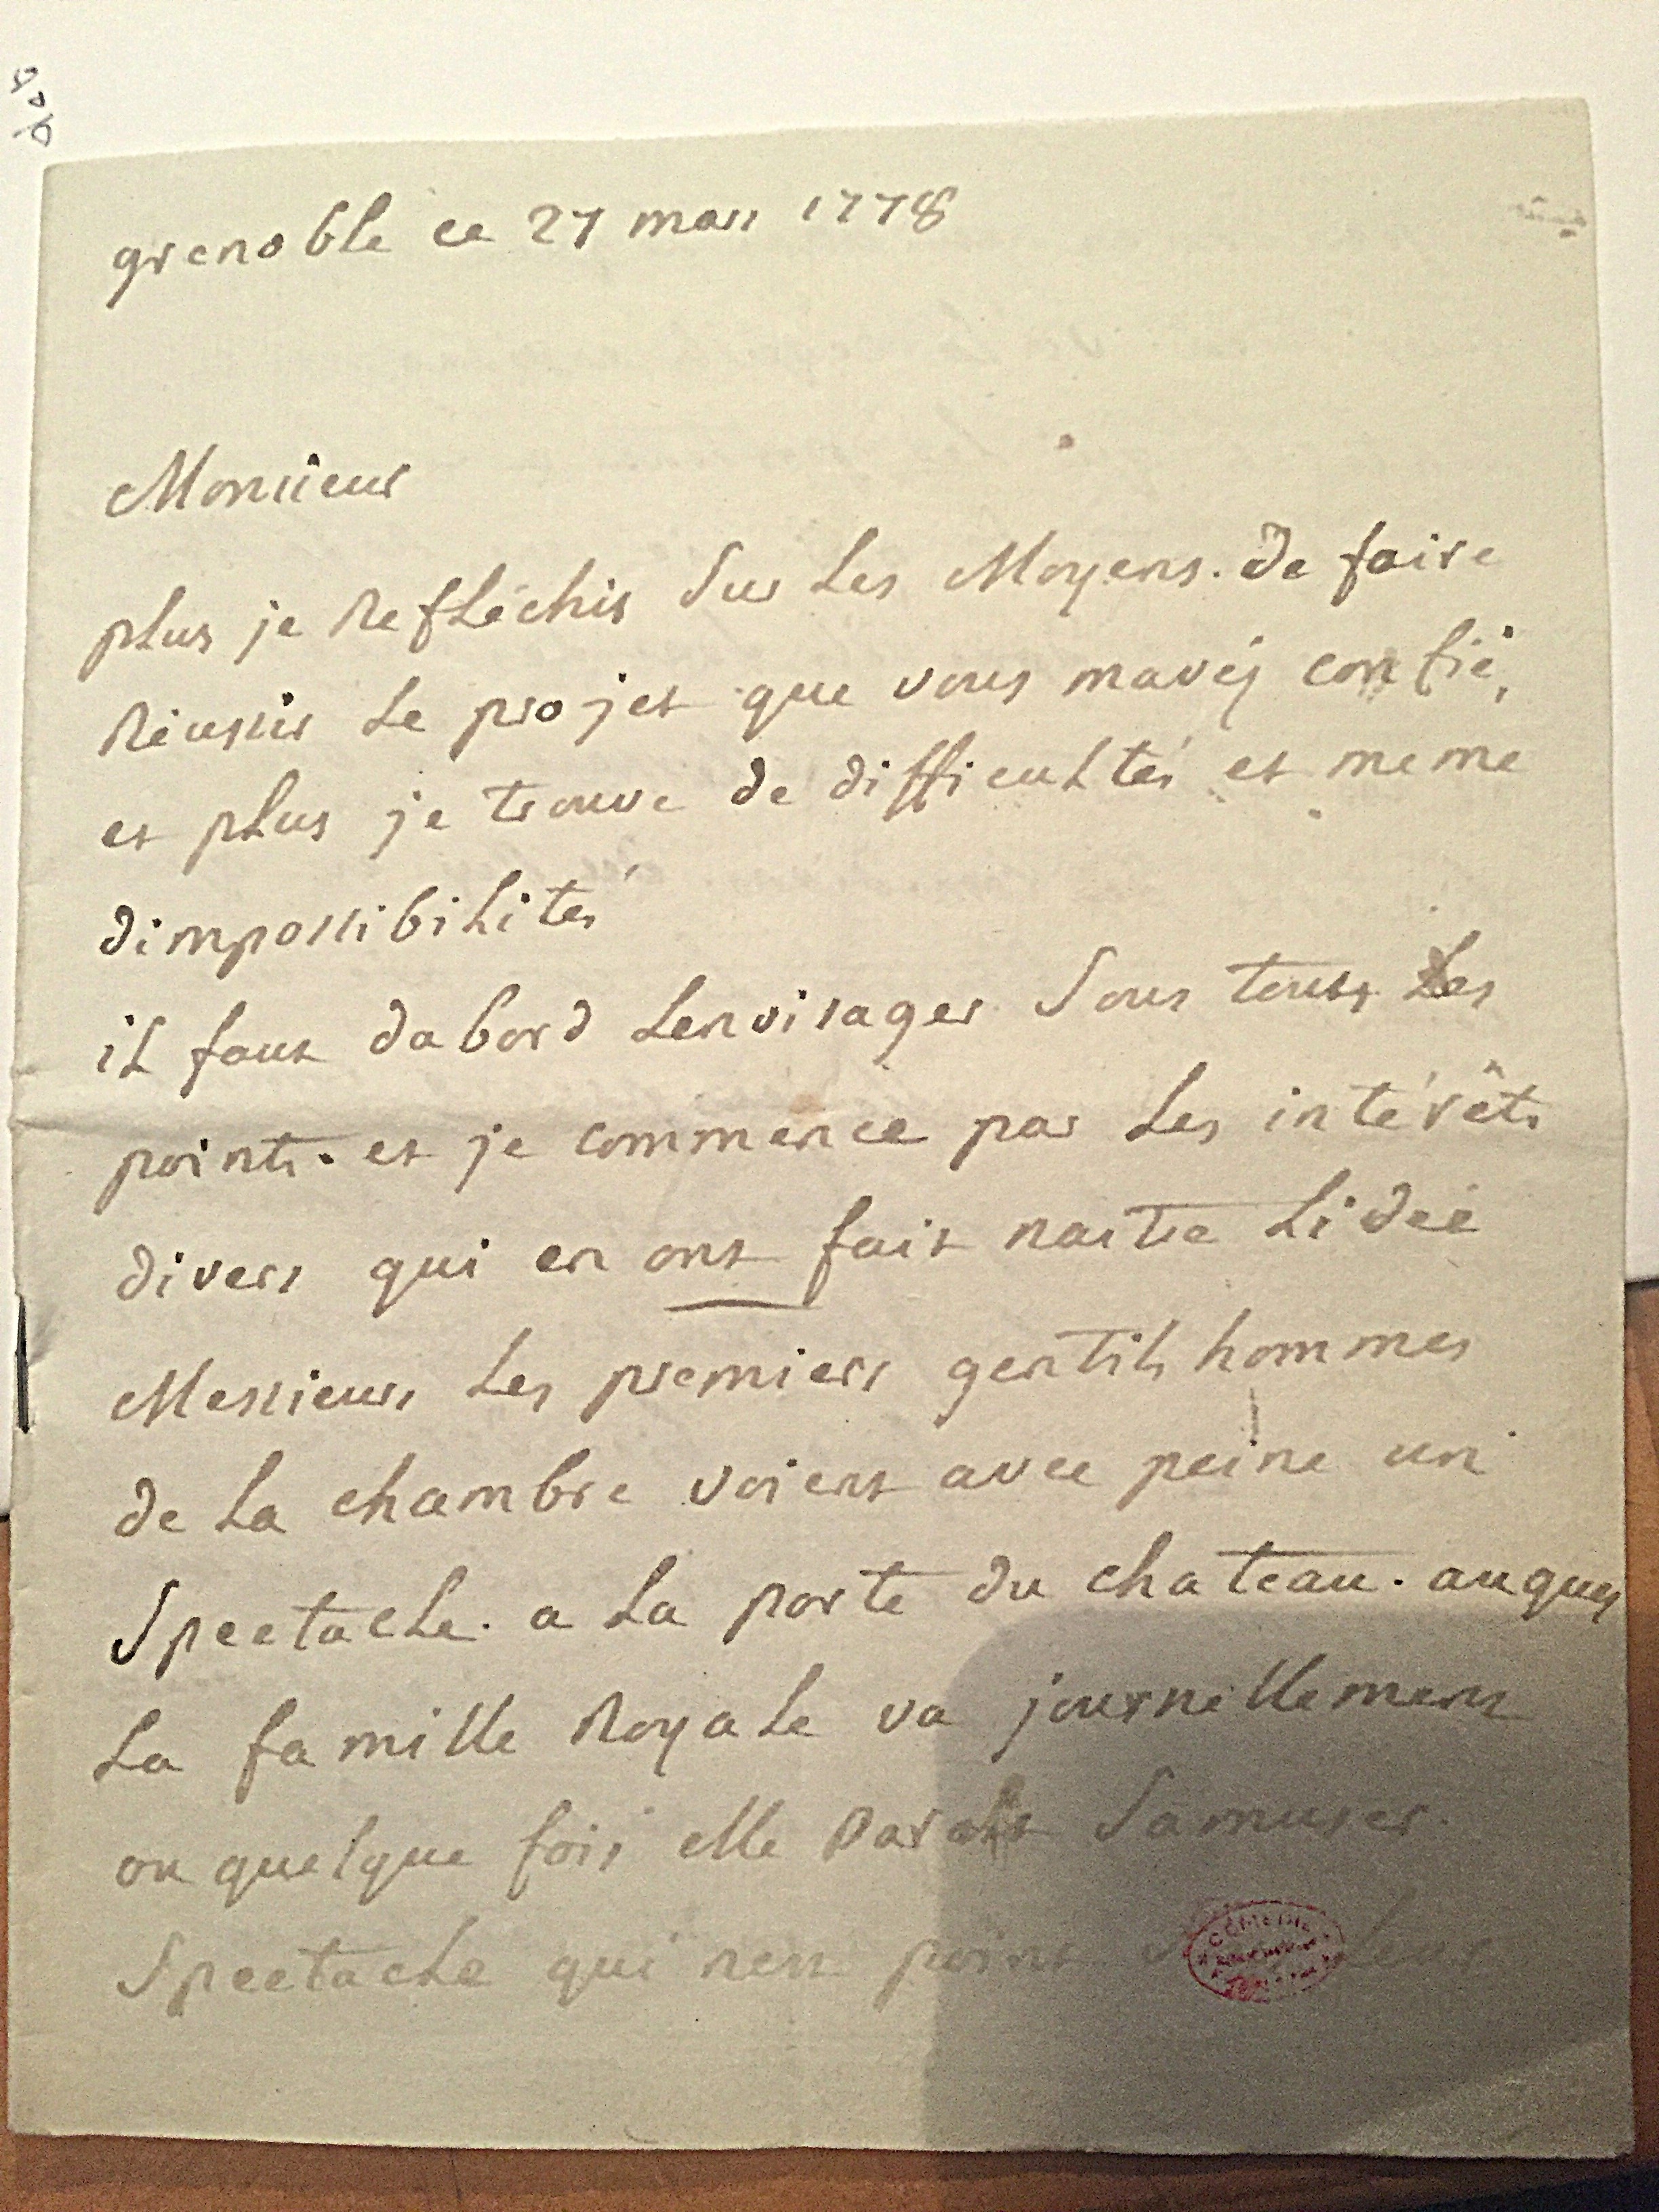 grenoble ce 27 mars 1778
Monsieur
plus je Refléchis Sur Les Moyens. de faire
Réussir Le projet que vous mavés confié,
et plus je trouve de difficultés et meme
dimpossibilités
il faut dabord Lenvisager Sous touts Les
points. et je commence par Les intérêts
divers qui en ont fait naitre Lidée
Messieurs Les premiers gentils hommes
de La chambre voient avec peine un
Spectacle. a La porte du chateau. auquel
La famille Royale va journellement
ou quelque fois elle parait Samuser.
Spectacle qui nest point
COMEDIE